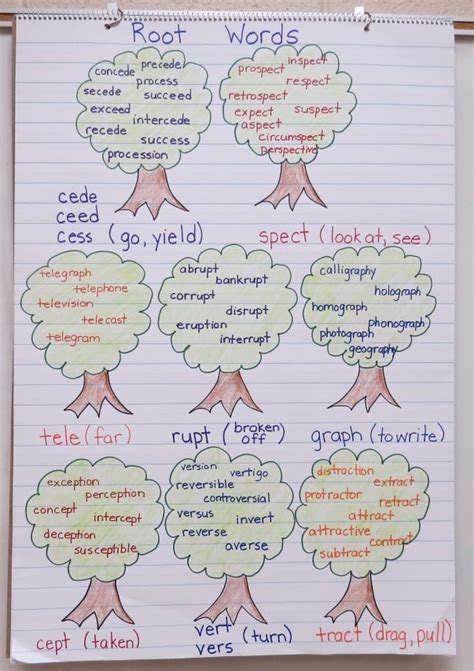 Root Words
concede precede
process
secede succeed
exceed
intercede
recede
success
procession
inspect
prospect
respect
retrospect
expect suspect
aspect
circumspect
perspective
cede
ceed
cess (go, yield)
spect (look at, see)
telegraph
telephone
television
telecast
telegram
abrupt
bankrupt
corrupt
disrupt
eruption
interrupt
calligraphy
holograph
homograph
phonograph
photograph
geography
tele (far)
rupt (broken off)
graph (to write)
exception
perception
concept
intercept
deception
susceptible
version vertigo
reversible
controversial
versus invert
reverse
averse
distraction
extract
protractor
retract
attract
attractive
contract
subtract
cept (taken)
vert
vers (turn)
tract (drag, pull)